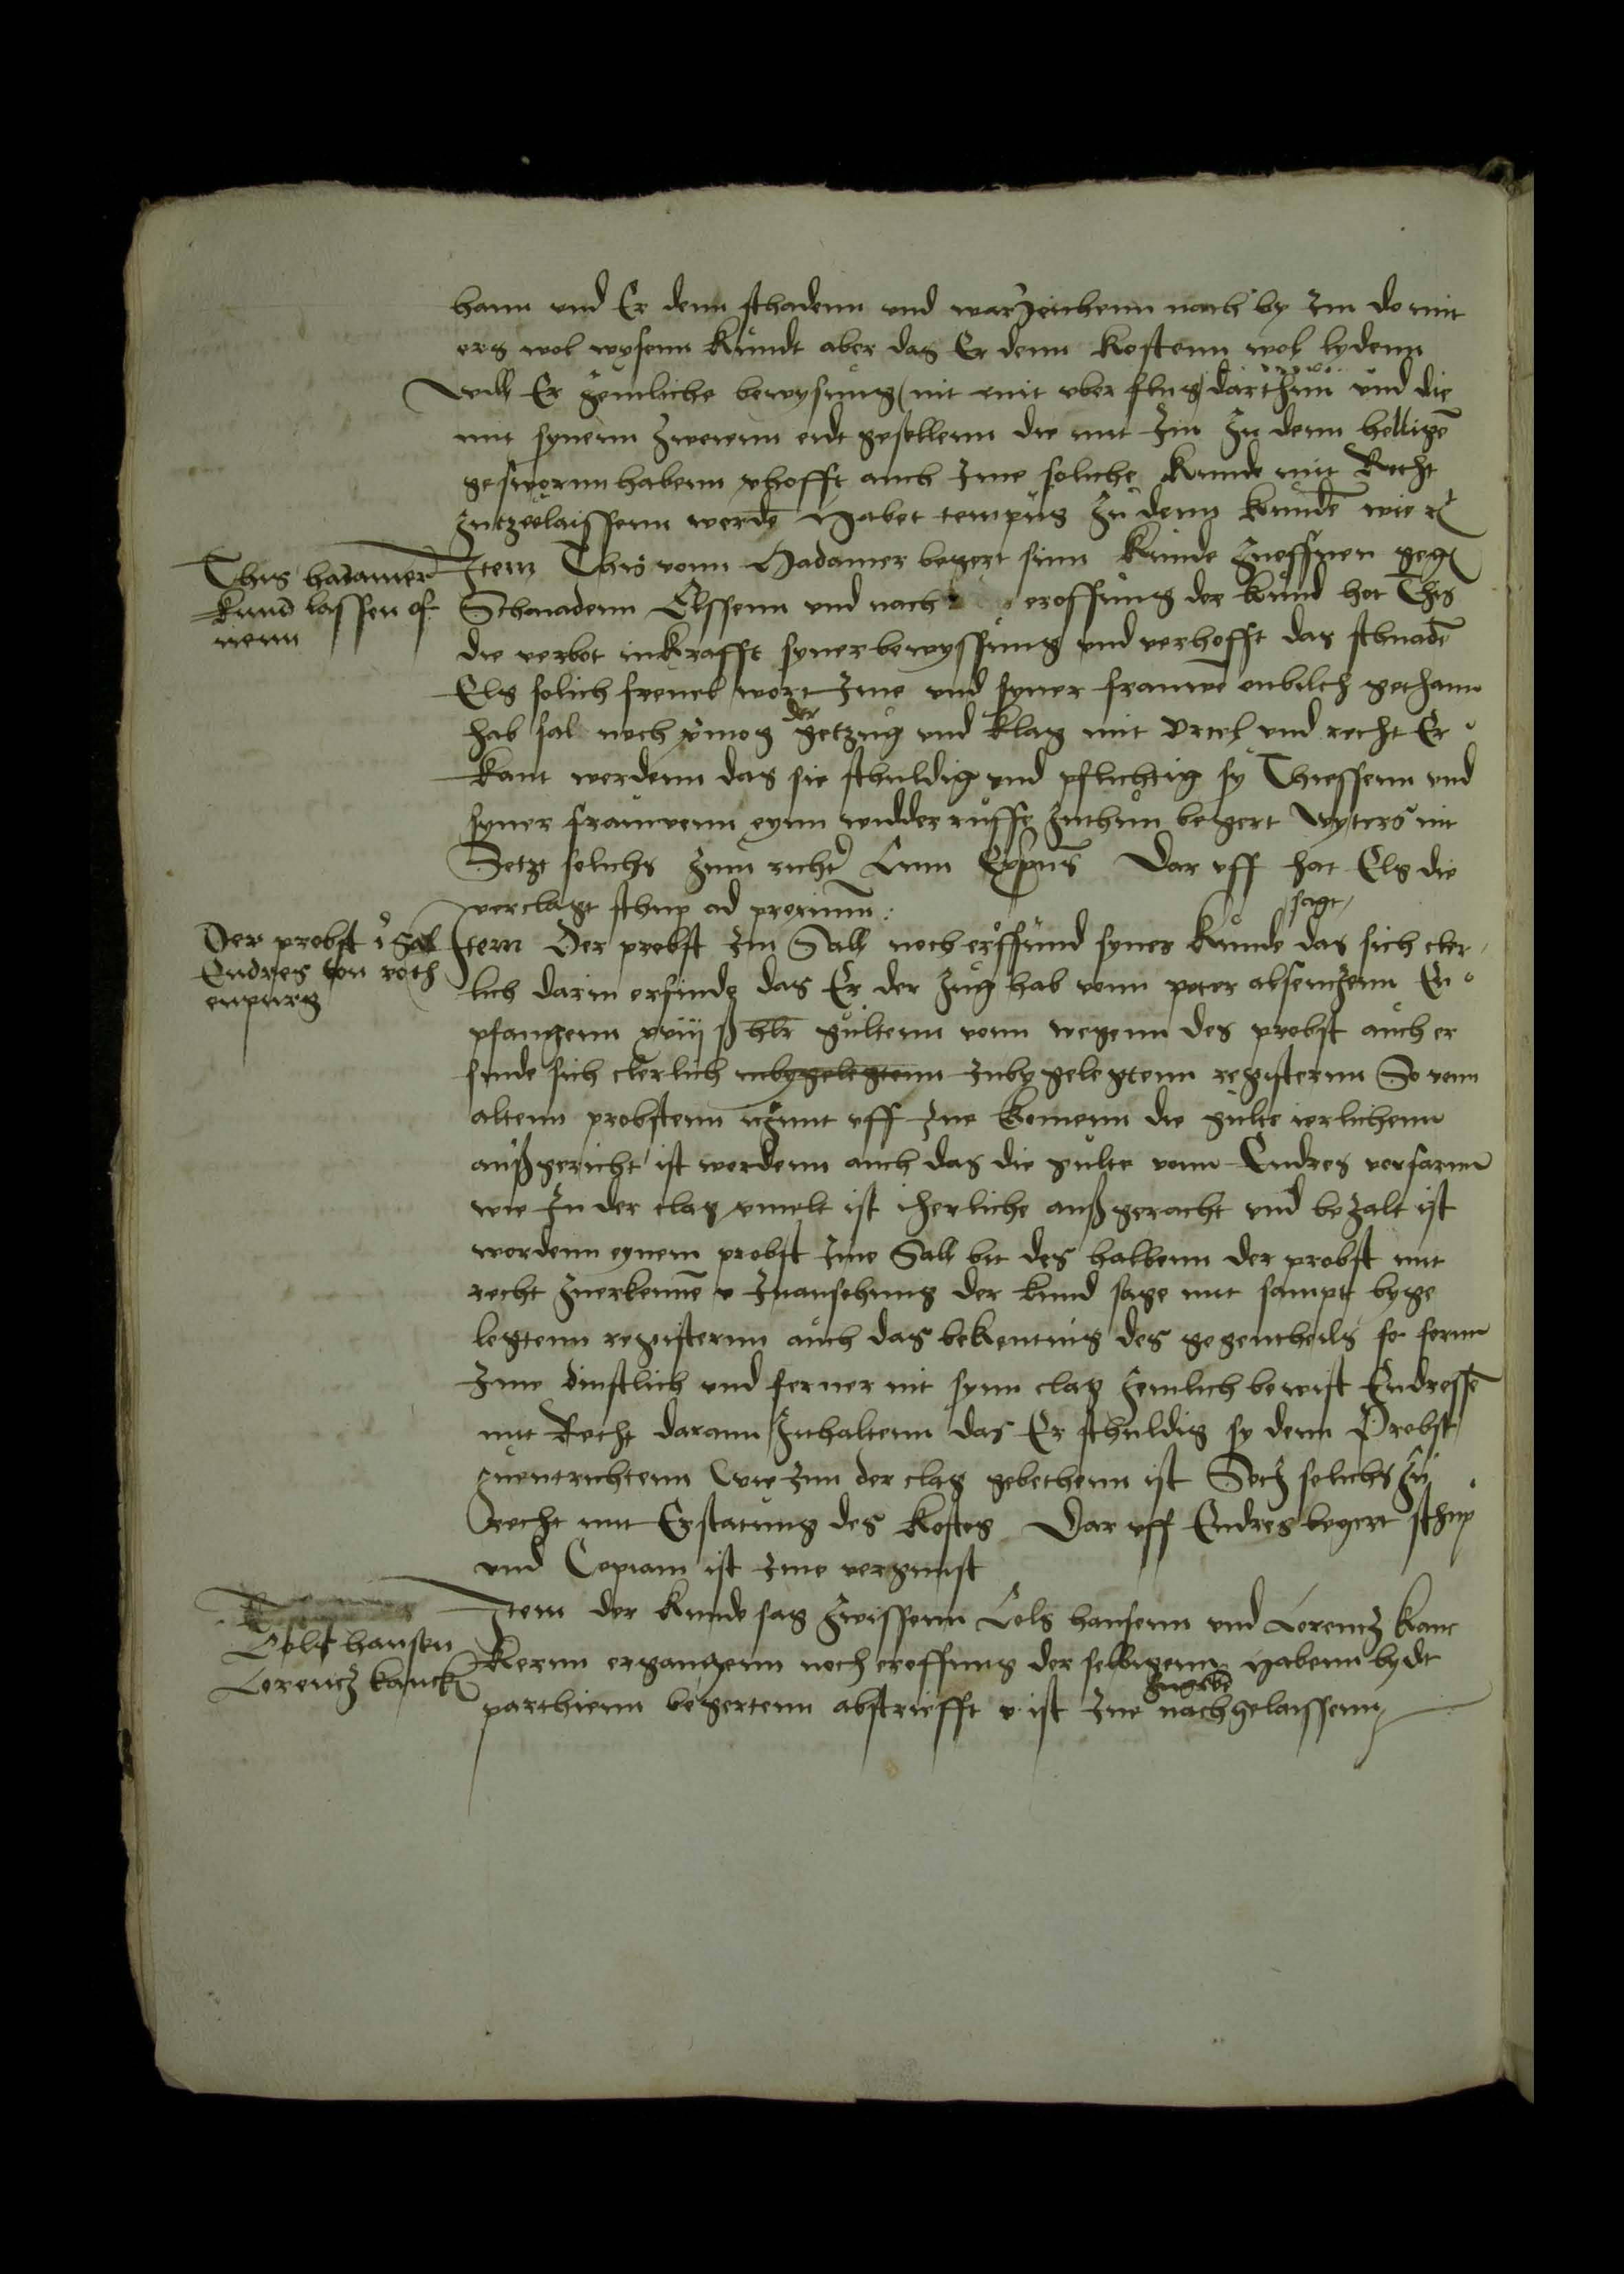 hann vnd Er denn schadenn vnd warzeichenn noch by Im do mit
ers wol wysenn kundt aber das Er denn kostenn wol lydenn
will Er zemliche bewysung nit mit vber flus darthun vnd die
mit synenn zweienn eidt gesellenn die mit Im zu denn helligē
geswornn habenn vhofft auch Ime soliche kunde mit Recht
zutzulaissenn werdē Habet tempus zu denn kundē wie
This hadamer
kund lassen of
nenn
Item This vonn Hadamer begert sinn kunde zuoffnen geg
Schnadenn Elssenn vnd nach eroffung der kund hot This
die verbot inkrafft syner bewyssung vnd verhofft das schnadē
Els solich freuel wort Ime vnd syner frauwē onbilch gethann
hab sal noch vmog der getzug vnd klag mit vrtel vnd recht Er
kant werdenn das sie schuldig vnd pflichtig sy Thiessenn vnd
syner frauwenn eynn widderruffe zuthun begert wyters nit
Setzt solichs zum recht Cum Expns̄ Dar vff hat Els die
verclagt schup ad proximū
Der probst ī Sal
Endres von roth
enpurg
Item Der probst Im Sall noch eröffnund syner kunde sagt das sich cler
lich darin erfinde das Er der zug hab vonn peter absenzenn En
pfangenn xviij ß hlr gultenn vonn wegenn des probst auch er
finde sich clerlich inbygelegtenn Inby gelegtenn registernn So vonn
altenn probstenn itzunt vff Ine komenn die gulte ierlichenn
außgericht ist wordenn auch das die gulte vonn Endres vorfarnn
wie In der clag vmelt ist iherliche außgeracht vnd bezalt ist
wordenn eynem probst Ime Sall bit des halbenn der probst mit
recht zuerkennē v Inansehung der kund sage mit sampt byge
legtenn registernn auch das bekentnus des gegentheils so fernn
Ime dinstlich vnd ferner nit synn clag zemlich bewist Endressē
mit Recht darann zuhaltenn das Er schuldig sy denn Probst
zuentrichtenn wie Inn der clag gebethenn ist Setz solichs zu
recht mit Erstatung des kostes Dar vff Endres begert schup
vnd Copiam ist Ime vergunst
Cols hansen
Lorentz kanck
Item der kunde sag zwissenn Cols hansenn vnd Lorentz kanc
kernn ergangenn noch eroffung der selbigenn habenn bydt
parthienn begertenn abschriefft v ist Ine zugebē nachgelaissenn